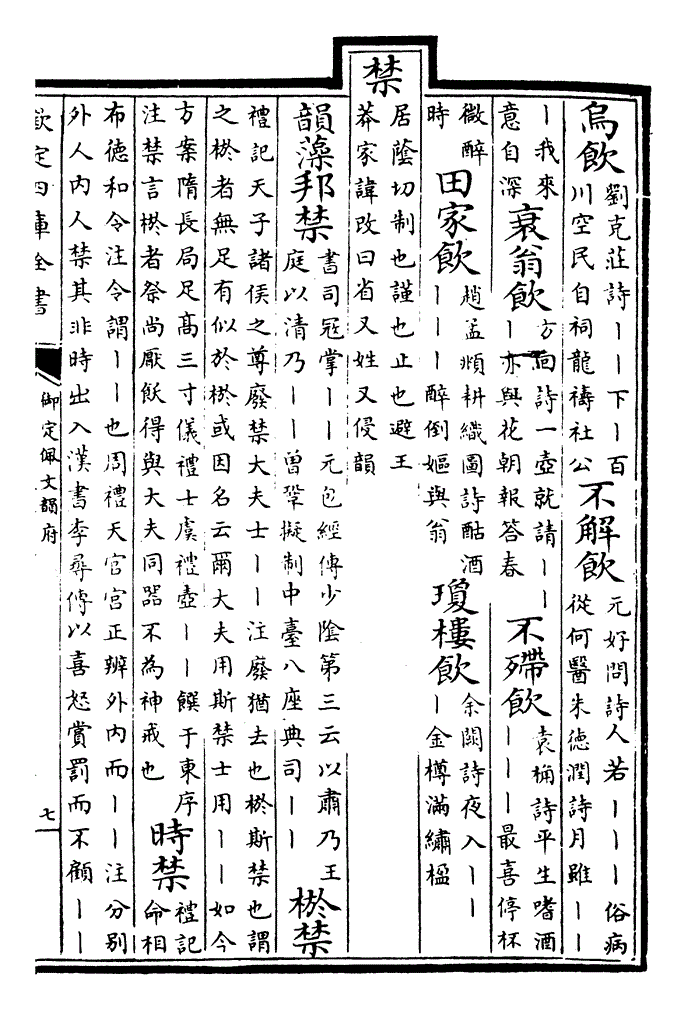 烏飲劉克莊詩丨丨下丨百
川空民自祠龍禱社公不解飲元好問詩人若丨丨丨俗病
從何醫朱德潤詩月雖丨丨
丨我來
意自深衰翁飲方回詩一壺就請丨丨
丨亦與花朝報答春不殢飲袁桷詩平生嗜酒
丨丨丨最喜停杯
微醉
時田家飲趙孟頫耕織圖詩酤酒
丨丨丨醉倒嫗與翁瓊樓飲余闕詩夜入丨丨
丨金樽滿繡楹
禁
居蔭切制也謹也止也避王
莽家諱改曰省又姓又侵韻
韻藻邦禁書司冦掌丨丨元包經傳少陰第三云以肅乃王
庭以清乃丨丨曾鞏擬制中臺八座典司丨丨棜禁
禮記天子諸侯之尊廢禁大夫士丨丨注廢猶去也棜斯禁也謂
之棜者無足有似於棜或因名云爾大夫用斯禁士用丨丨如今
方案隋長局足高三寸儀禮士虞禮壺丨丨饌于東序
注禁言棜者祭尚厭飫得與大夫同器不為神戒也時禁禮記
命相
布德和令注令謂丨丨也周禮天官宮正辨外內而丨丨注分别
外人內人禁其非時出入漢書李尋傳以喜怒賞罰而不顧丨丨
欽定四庫全書
御定佩文韻府
七